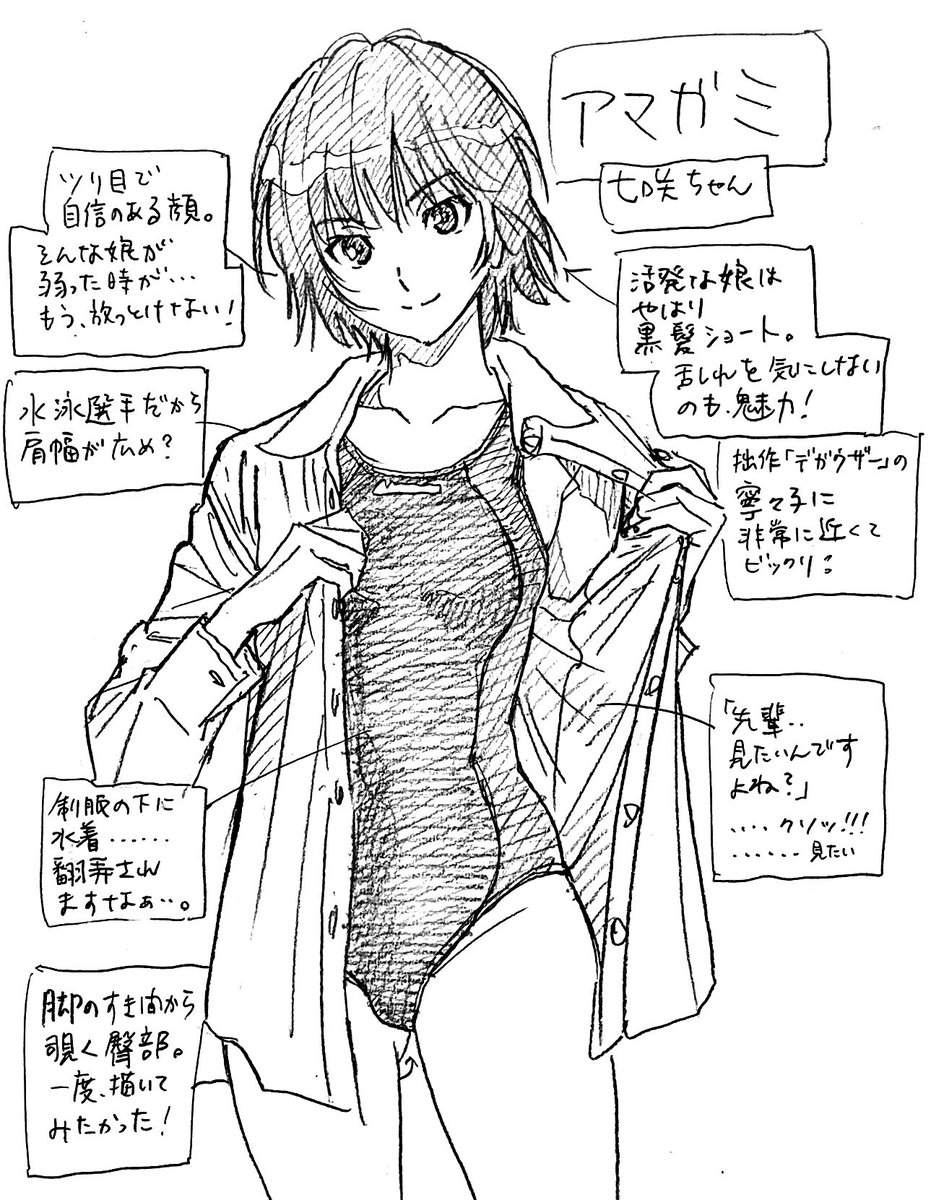 アマガミ
七咲ちゃん
ツリ目で
自信のある顔。
そんな娘が
弱った時が…
もう、放っとけない!
活発な娘は
やはり
黒髪ショート。
乱れを気にしない
のも、魅力!
水泳選手だから
肩幅が広め?
拙作「デガウザー」の
寧々子に
非常に近くて
ビックリ!
「先輩‥
見たいんです
よね?」
‥‥クソッ!!!
‥‥‥見たい
制服の下に
水着‥‥‥
翻弄さん
ますなぁ…。
脚のすき間から
覗く臀部。
一度、描いて
みたかった!